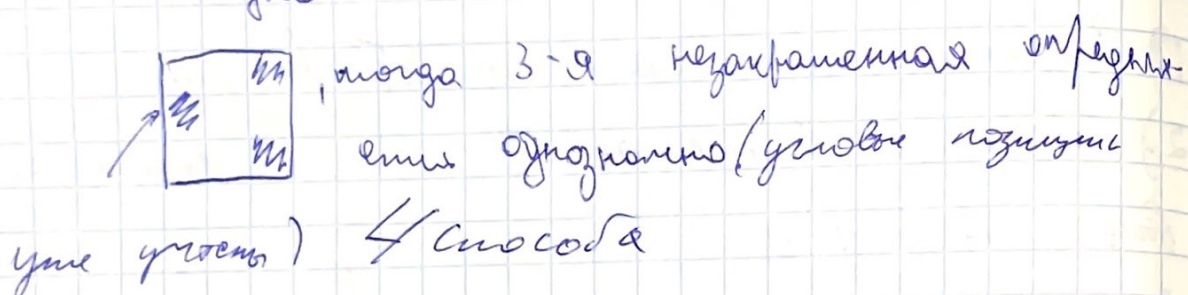 , тогда 3-я незакрашенная определя-
ется однозначно (угловые позиции
уже учтены) 4 способа